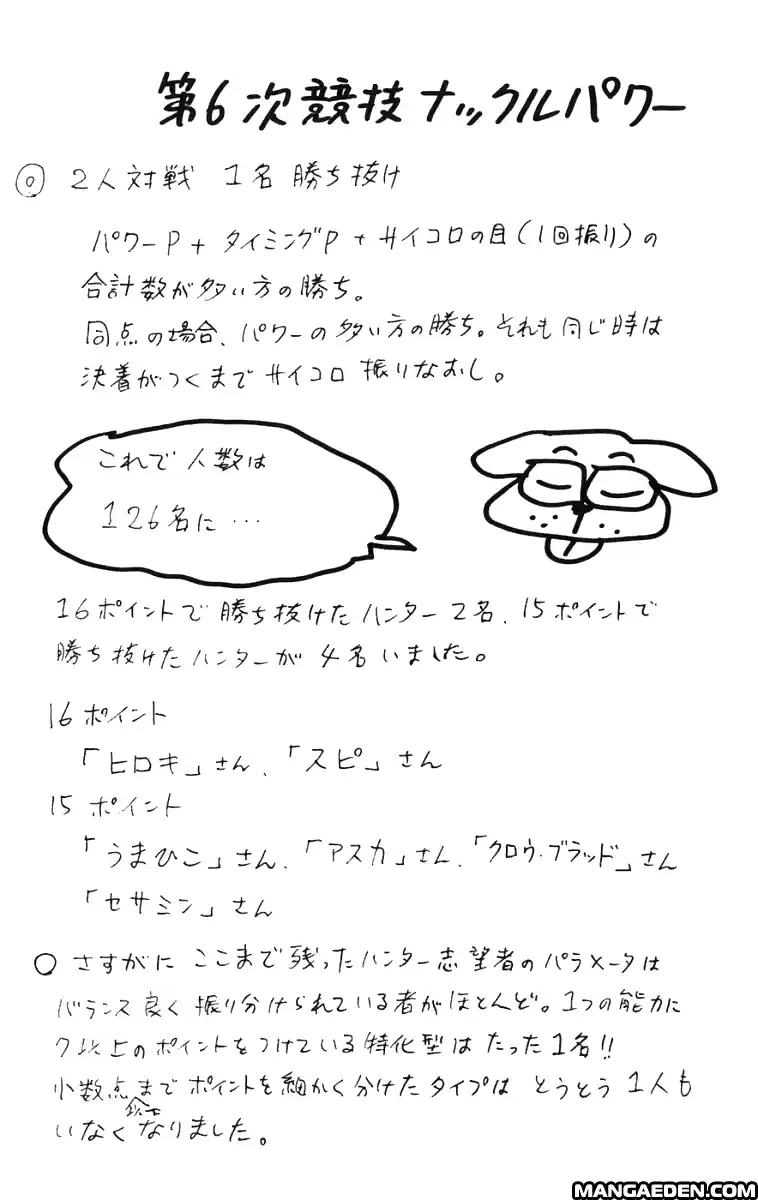 第6次競技ナックルパワー
◎ 2人対戦 1名勝ち抜け
パワーP+タイミングP+サイコロの目(1回振り)の
合計数が多い方の勝ち。
同点の場合、パワーの多い方の勝ち。それも同じ時は
決着がつくまでサイコロ振りなおし。
これで人数は
126名に…
16ポイントで勝ち抜けたハンター2名、15ポイントで
勝ち抜けたハンターが4名いました。
16ポイント
「ヒロキ」さん、「スピ」さん
15ポイント
「うまひこ」さん、「アスカ」さん、「クロウ・ブラッド」さん
「セサミン」さん
○ さすがにここまで残ったハンター志望者のパラメータは
バランス良く振り分けられている者がほとんど。1つの能力に
7以上のポイントをつけている特化型はたった1名!!
小数点までポイントを細かく分けたタイプはとうとう1人も
いなくなりました。
MANGAEDEN.COM